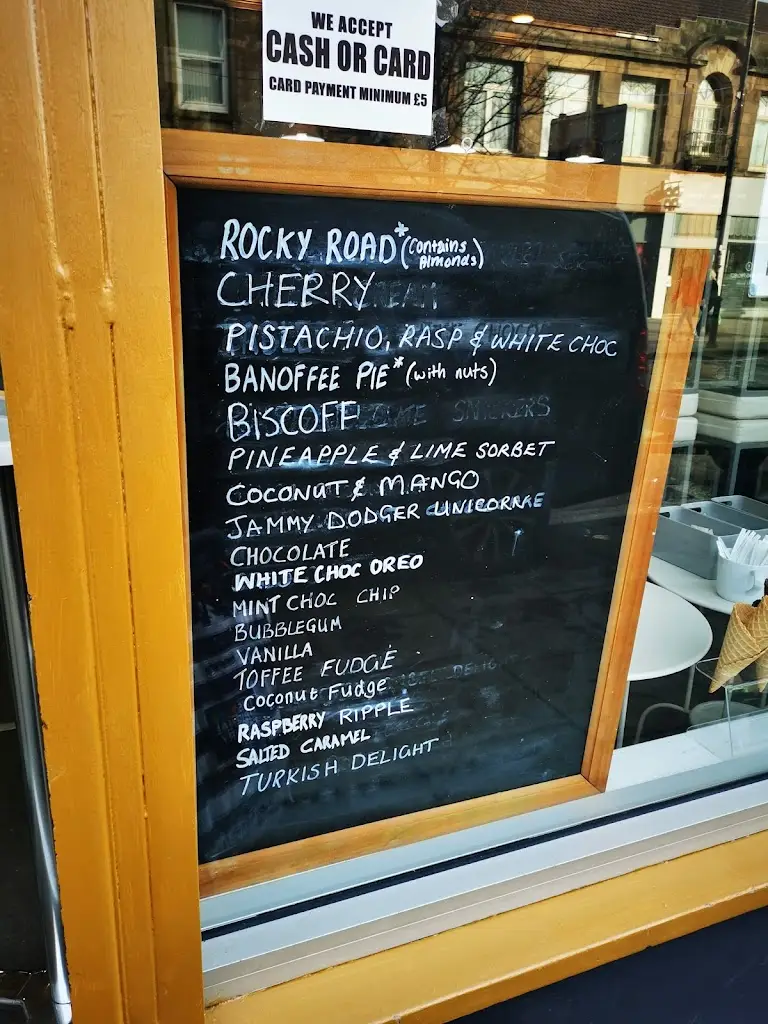 WE ACCEPT
CASH OR CARD
CARD PAYMENT MINIMUM £5
ROCKY ROAD* (Contains Almonds)
CHERRY
PISTACHIO, RASP & WHITE CHOC
BANOFFEE PIE* (with nuts)
BISCOFF
PINEAPPLE & LIME SORBET
COCONUT & MANGO
JAMMY DODGER
CHOCOLATE
WHITE CHOC OREO
MINT CHOC CHIP
BUBBLEGUM
VANILLA
TOFFEE FUDGE
Coconut Fudge
RASPBERRY RIPPLE
SALTED CARAMEL
TURKISH DELIGHT